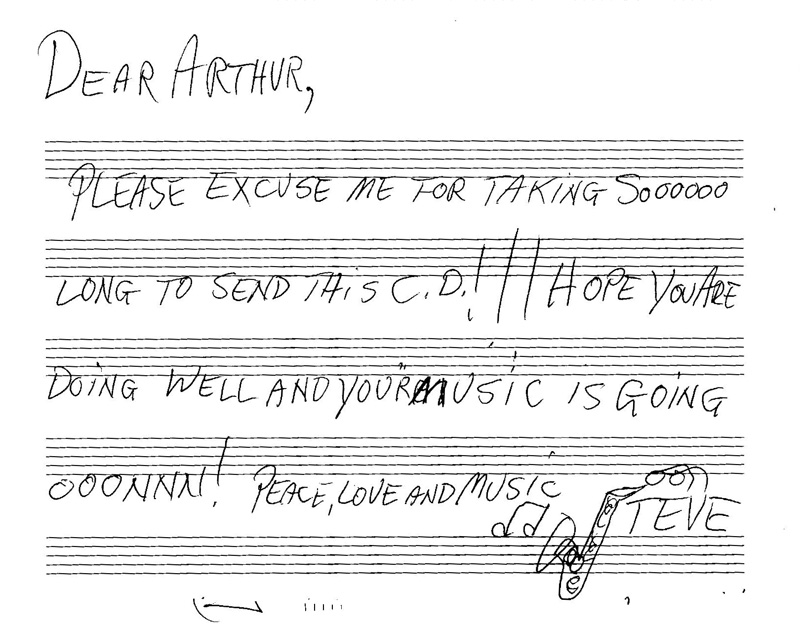 DEAR ARTHUR,
PLEASE EXCUSE ME FOR TAKING SOOOOOO
LONG TO SEND THiS C.D.!!! HOPE YOU ARE
DOiNG WELL AND YOUR MUSiC IS GOiNG
OOONNNN! PEACE, LOVE AND MUSiC
STEVE